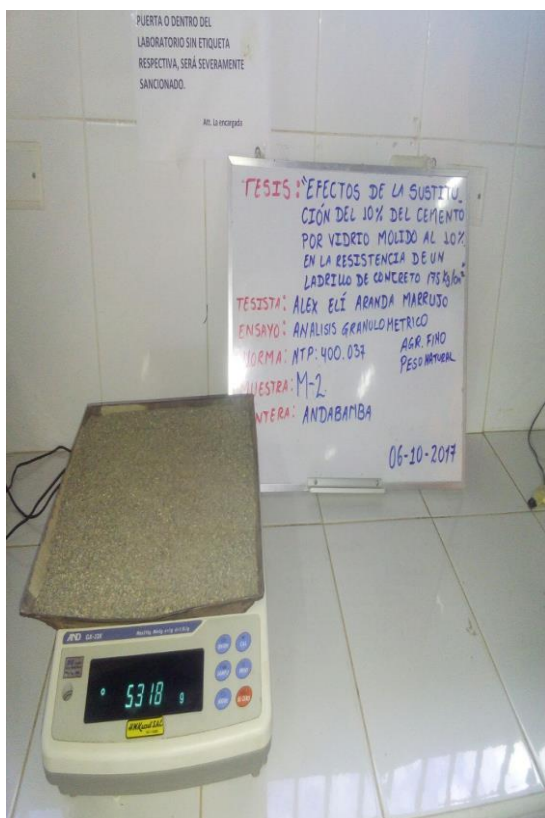 PUERTA O DENTRO DEL
LABORATORIO SIN ETIQUETA
RESPECTIVA, SERÁ SEVERAMENTE
SANCIONADO.
Att. La encargada
TESIS: "EFECTOS DE LA SUSTITU_
CIÓN DEL 10% DEL CEMENTO
POR VIDRIO MOLIDO AL 10%,
EN LA RESISTENCIA DE UN
LADRILLO DE CONCRETO 175 Kg/cm²"
TESISTA: ALEX ELÍ ARANDA MARRUJO
ENSAYO: ANALISIS GRANULOMETRICO
AGR. FINO
NORMA: NTP: 400.037
PESO NATURAL
MUESTRA: M-2
CANTERA: ANDABAMBA
06-10-2017
AND
5318 g